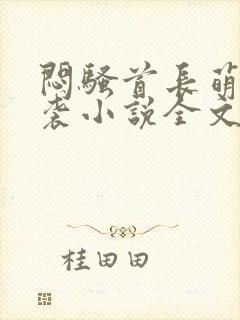 悶騷首長萌
袭小說全文
桂田田